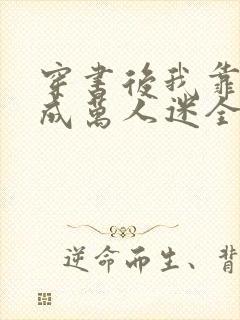 穿書後我靠
成萬人迷全
逆命而生、背